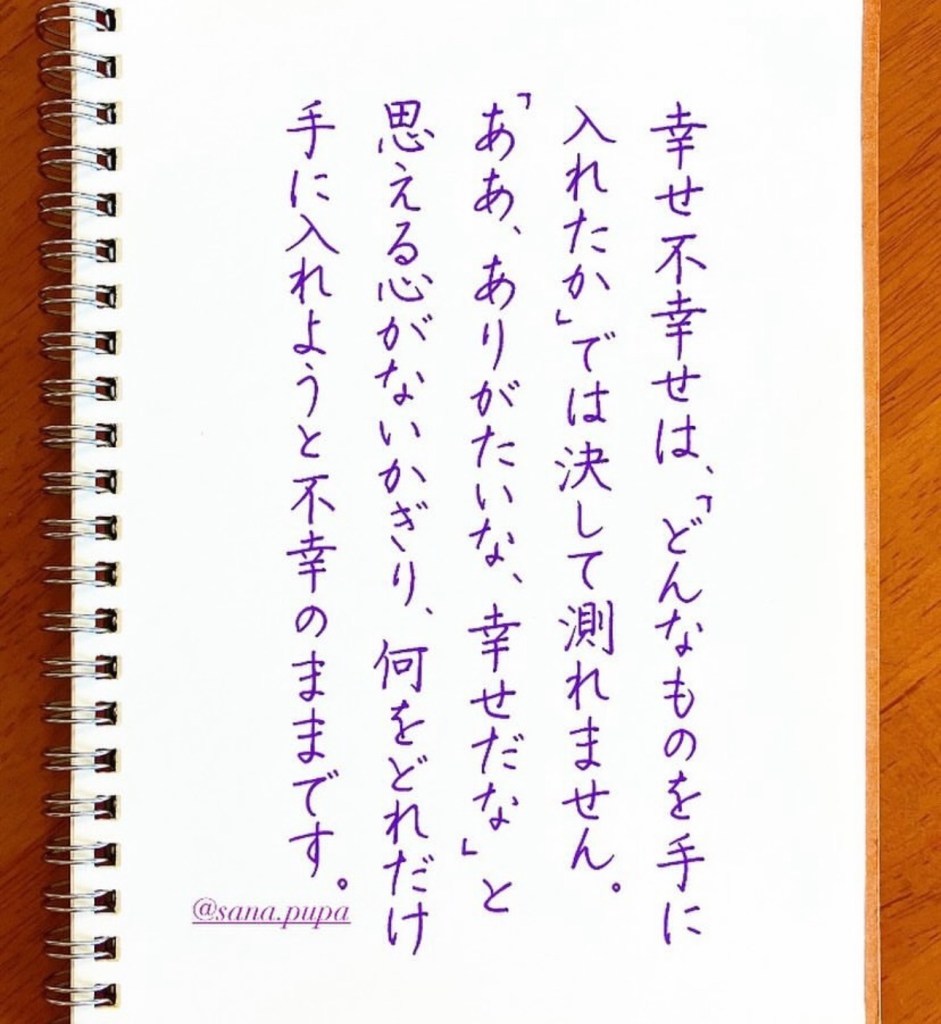 幸せ不幸せは、「どんなものを手に
入れたか」では決して測れません。
「ああ、ありがたいな、幸せだな」と
思える心がないかぎり、何をどれだけ
手に入れようと不幸のままです。
@sana.pupa